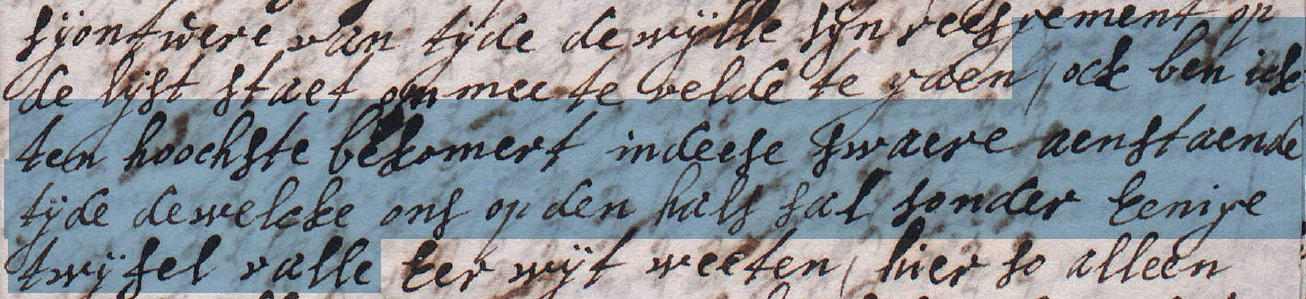 sijontwere van tijde dewijlle sijn reesrement op
de lijst staet om mee te velde te gaen / ock ben ick
ten hoochste bekomert in deese swaere aenstaende
tijde dewelcke ons op den hals sal sonder eenige
twijfel valle eer wijt weeten / hier so alleen